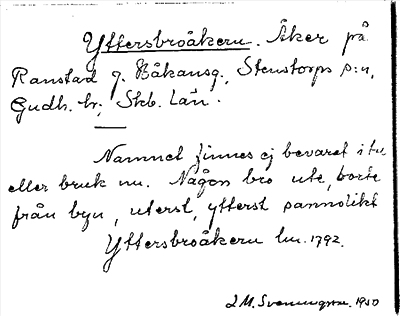 Yttersbroåkern. Åker på
Ranstad g. Håkansg., Stenstorps s:n,
Gudh. hr, Skb. Län.
Namnet finnes ej bevarat i tal
eller bruk nu. Någon bro ute, borte
från byn, uterst, ytterst sannolikt
Yttersbroåkern lm. 1792.
J. M. Svenungsson. 1950